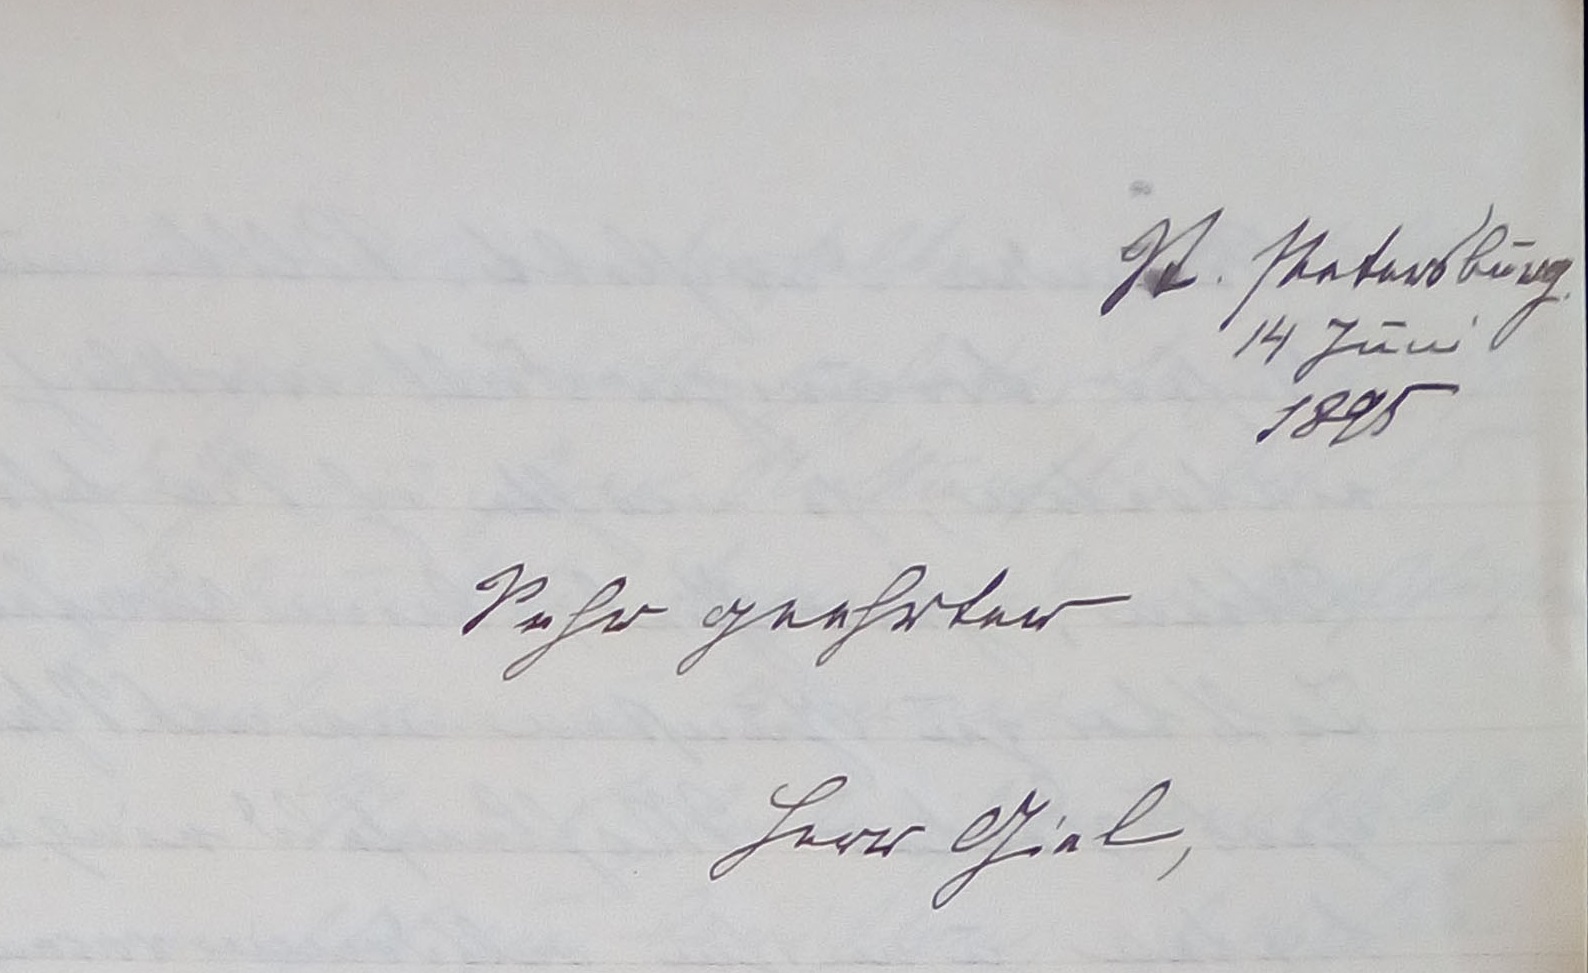 St. Petersburg.
14 Juni
1895
Sehr geehrter
Herr Giel,